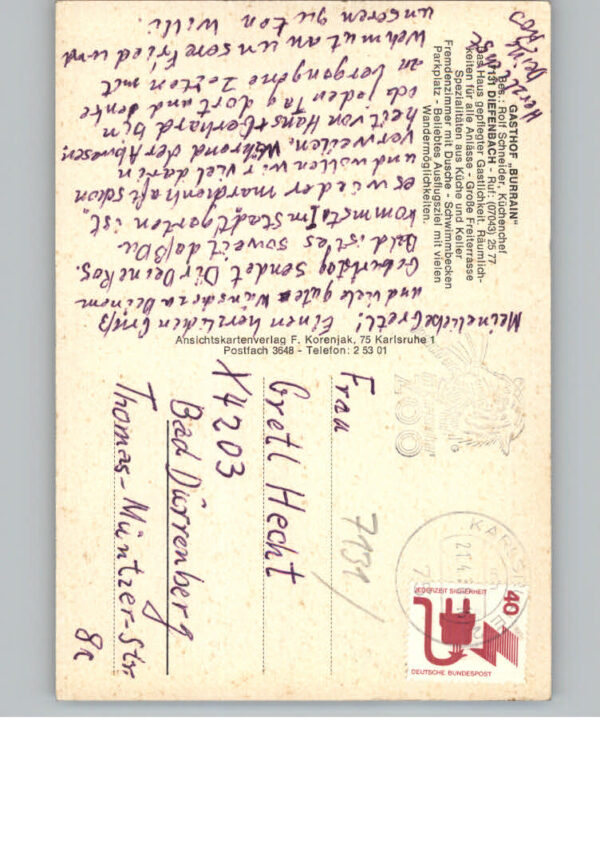 GASTHOF „BURRAIN“
Bes.: Rolf Schneider, Küchenchef
7131 DIEFENBACH - Ruf: (07043) 25 77
Das Haus gepflegter Gastlichkeit. Räumlich-
keiten für alle Anlässe - Große Freiterrasse
Spezialitäten aus Küche und Keller
Fremdenzimmer mit Dusche - Schwimmbecken
Parkplatz - Beliebtes Ausflugsziel mit vielen
Wandermöglichkeiten.
Meine liebe Gretl! Einen herzlichen Gruß
und viele gute Wünsche zu Deinem
Geburtstag sendet Dir Deine Ros.
Bald ist es soweit daß Du
kommst. Im Stadtgarten ist
es wieder märchenhaft schön
und wollen wir viel darin
verweilen. Während der Abwesen
heit von Hans + Eberhard bin
ich jeden Tag dort und denke
an vergangene Zeiten mit
Wehmut an unsere Fried und
unseren guten Willi.
Herzlichst
Ansichtskartenverlag F. Korenjak, 75 Karlsruhe 1
Postfach 3648 - Telefon: 2 53 01
ZOO
KARLSRUHE
21.4.
75
JEDERZEIT SICHERHEIT
40
DEUTSCHE BUNDESPOST
7131
Frau
Gretl Hecht
X4203
Bad Dürrenberg
Thomas-Müntzer-Str.
8c